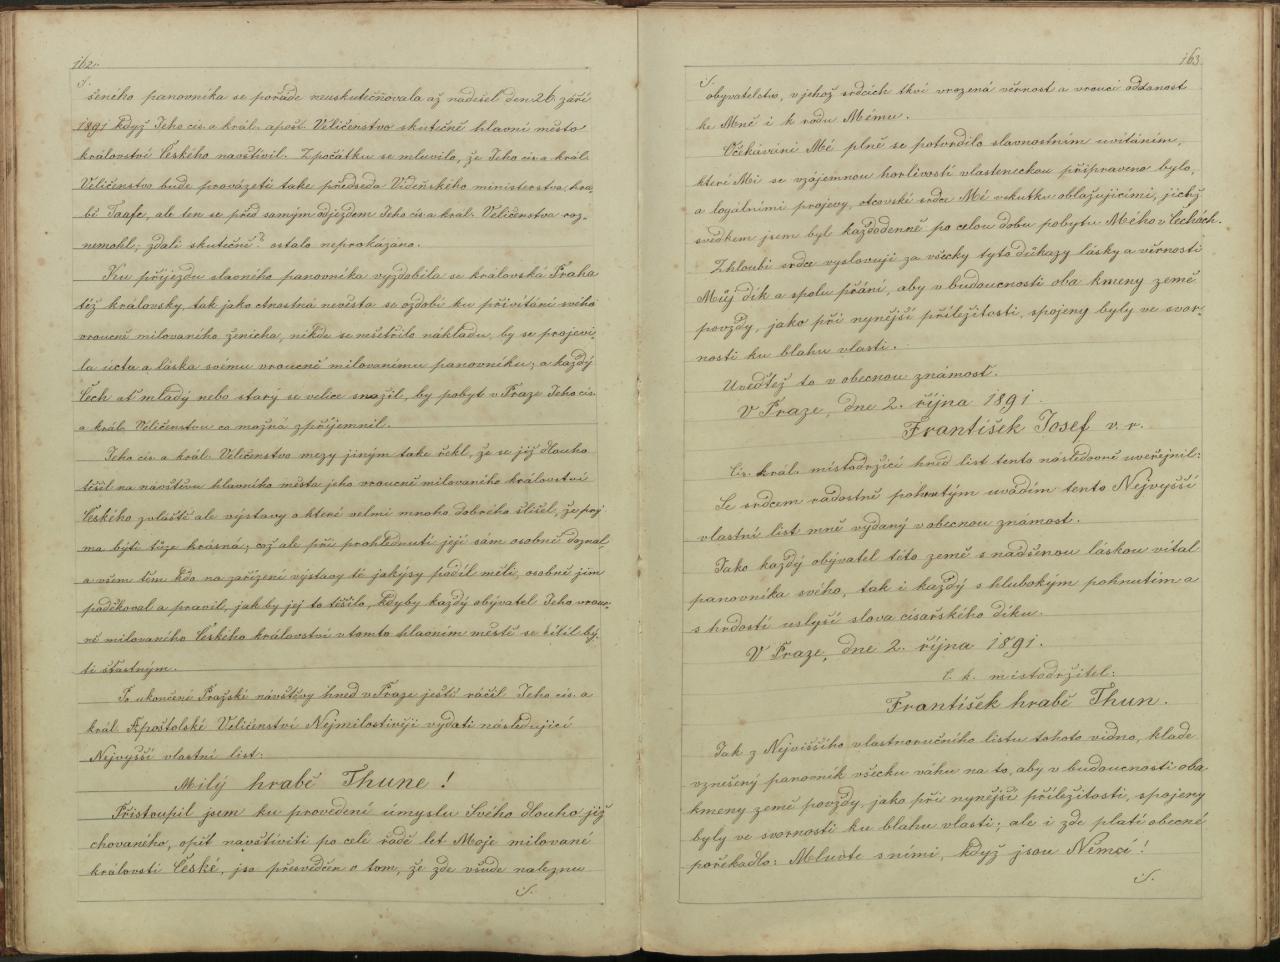 162.
·/.
šeného panovníka se pořáde neuskutečňovala až nadešel den 26 září
1891 když Jeho cís. a král. apošt. Veličenstvo skutečně hlavní město
království Českého navštívil. Zpočátku se mluvilo, že Jeho cís a král.
Veličenstvo bude provázeti take předseda Vídeňského ministerstva, hra-
bě Taafe, ale ten se před samým odjezdem Jeho cís a král. Veličenstva roz-
nemohl; zdali skutečně? ostalo neprokázáno.
Ku příjezdu slavného panovníka vyzdobila se královská Praha
též královsky, tak jako ctnostná nevěsta se ozdobí ku přivítání svého
vroucně milovaného ženicha, nikde se nešetřilo nákladu, by se projevi-
la úcta a láska svému vroucně milovanému panovníku; a každý
Čech ať mladý nebo starý se velice snažil, by pobyt v Praze Jeho cís.
a král. Veličenstvu co možná zpříjemnil.
Jeho cís. a král. Veličenstvo mezy jiným take řekl, že se již dlouho
těšil na návštěvu hlavního města jeho vroucně milovaného království
Českého zvláště ale výstavy o které velmi mnoho dobrého slišel, že prý
má býti tůze krásná; což ale při prohlednutí její sám osobně doznal,
a všem těm kdo na zařízení výstavy té jakýsy podíl měli, osobně jim
poděkoval a pravil, jak by jej to těšilo, kdyby každý obývatel Jeho vrouc-
ně milovaného Českého království v tomto hlavním městě se cítil bý-
ti šťastným.
Po ukončené Pražské návštěvy hned v Praze ještě ráčil Jeho cís. a
král Apoštolské Veličenství Nejmilostivěji vydati následující
Nejvyšší vlastní list:
Milý hrabě Thune!
Přistoupil jsem ku provedené úmyslu Svého dlouho již
chovaného, opět navštíviti po celé řadě let Moje milované
království České, jsa přesvědčen o tom, že zde všude naleznu
·/.
163.
·/.
obyvatelstvo, v jehož srdcích tkví vrozená věrnost a vroucí oddanost
ke Mně i k rodu Mému.
Očekávání Mé plně se potvrdilo slavnostním uvítáním,
které Mi se vzájemnou horlivostí vlasteneckou připraveno bylo,
a loyálními projevy, otcovské srdce Mé vskutku oblažujícími, jichž
svědkem jsem byl každodenně po celou dobu pobytu Mého v Čechách.
Z hloubi srdce vyslovuji za všecky tyto důkazy lásky a věrnosti
Můj dík a spolu přání, aby v budoucnosti oba kmeny země
povždy, jako při nynější příležitosti, spojeny byly ve svor-
nosti ku blahu vlasti.
Uveďtež to v obecnou známost.
V Praze, dne 2. října 1891.
František Josef v. r.
Cís. král. místodržící hned list tento následovně uveřejnil:
Se srdcem radostně pohnutým uvádím tento Nejvyšší
vlastní list mně vydaný v obecnou známost.
Jako každý obývatel této země s nadšenou láskou vítal
panovníka svého, tak i každý s hlubokým pohnutím a
s hrdostí uslyší slova císařského díku.
V Praze, dne 2. října 1891.
C. k. místodržitel:
František hrabě Thun.
Jak z Nejvišsího vlastnoručního listu tohoto vidno, klade
vznešený panovník všecku váhu na to, aby v budoucnosti oba
kmeny země povždy, jako při nynější příležitosti, spojeny
byly ve svornosti ku blahu vlasti; ale i zde platí obecné
pořekadlo: Mluvte s nimi, když jsou Němci!
·/.